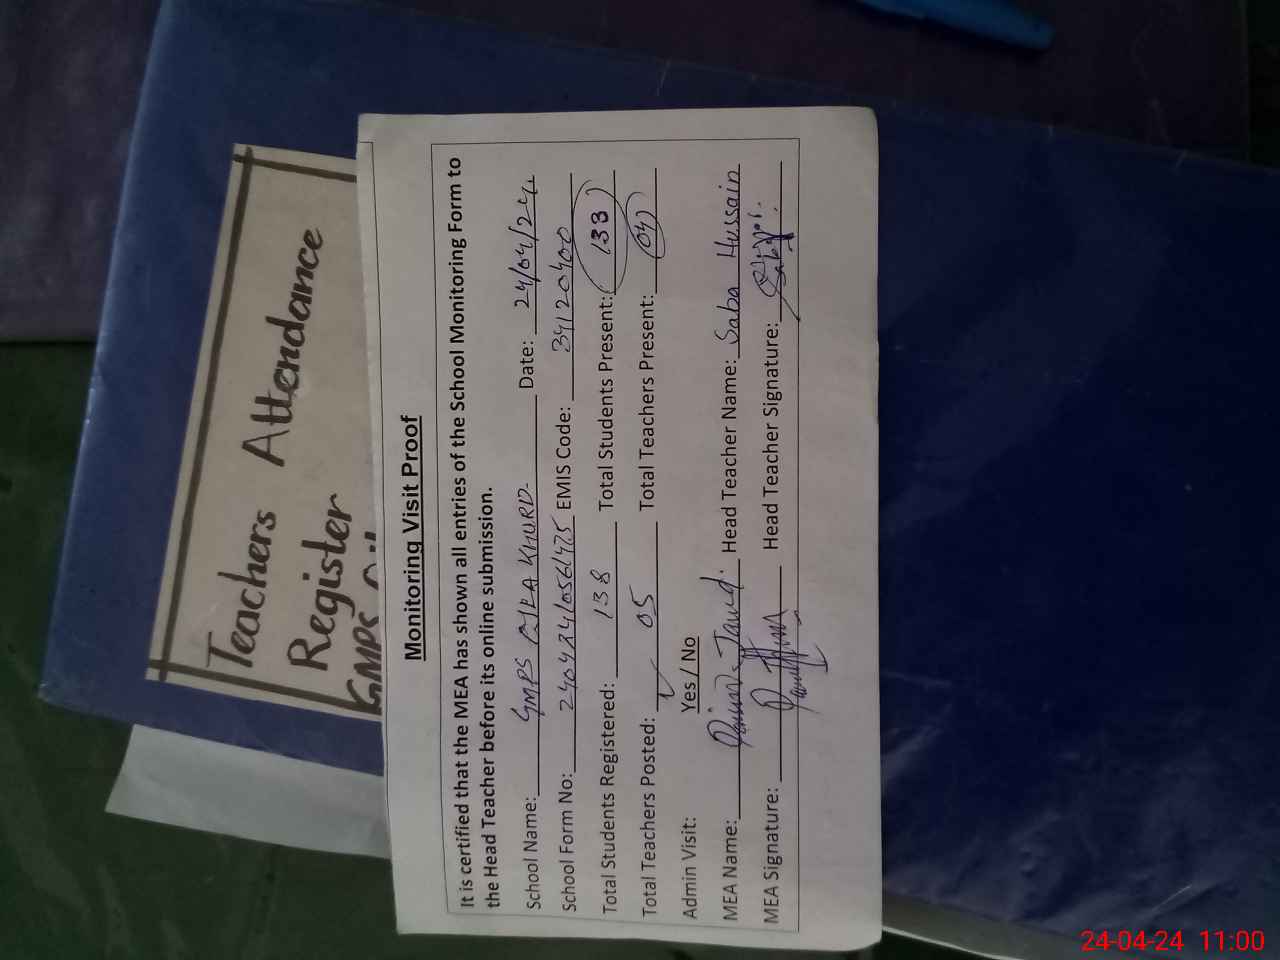 Teachers Attendance
Register
GMPS
Monitoring Visit Proof
It is certified that the MEA has shown all entries of the School Monitoring Form to
the Head Teacher before its online submission.
School Name: GMPS QILA KHURD- Date: 24/04/24
School Form No: EMIS Code: 34120400
Total Students Registered: 138 Total Students Present: 133
Total Teachers Posted: 05 Total Teachers Present: 04
Admin Visit: Yes / No
MEA Name: Head Teacher Name: Saba Hussain
MEA Signature: Head Teacher Signature:
24-04-24 11:00